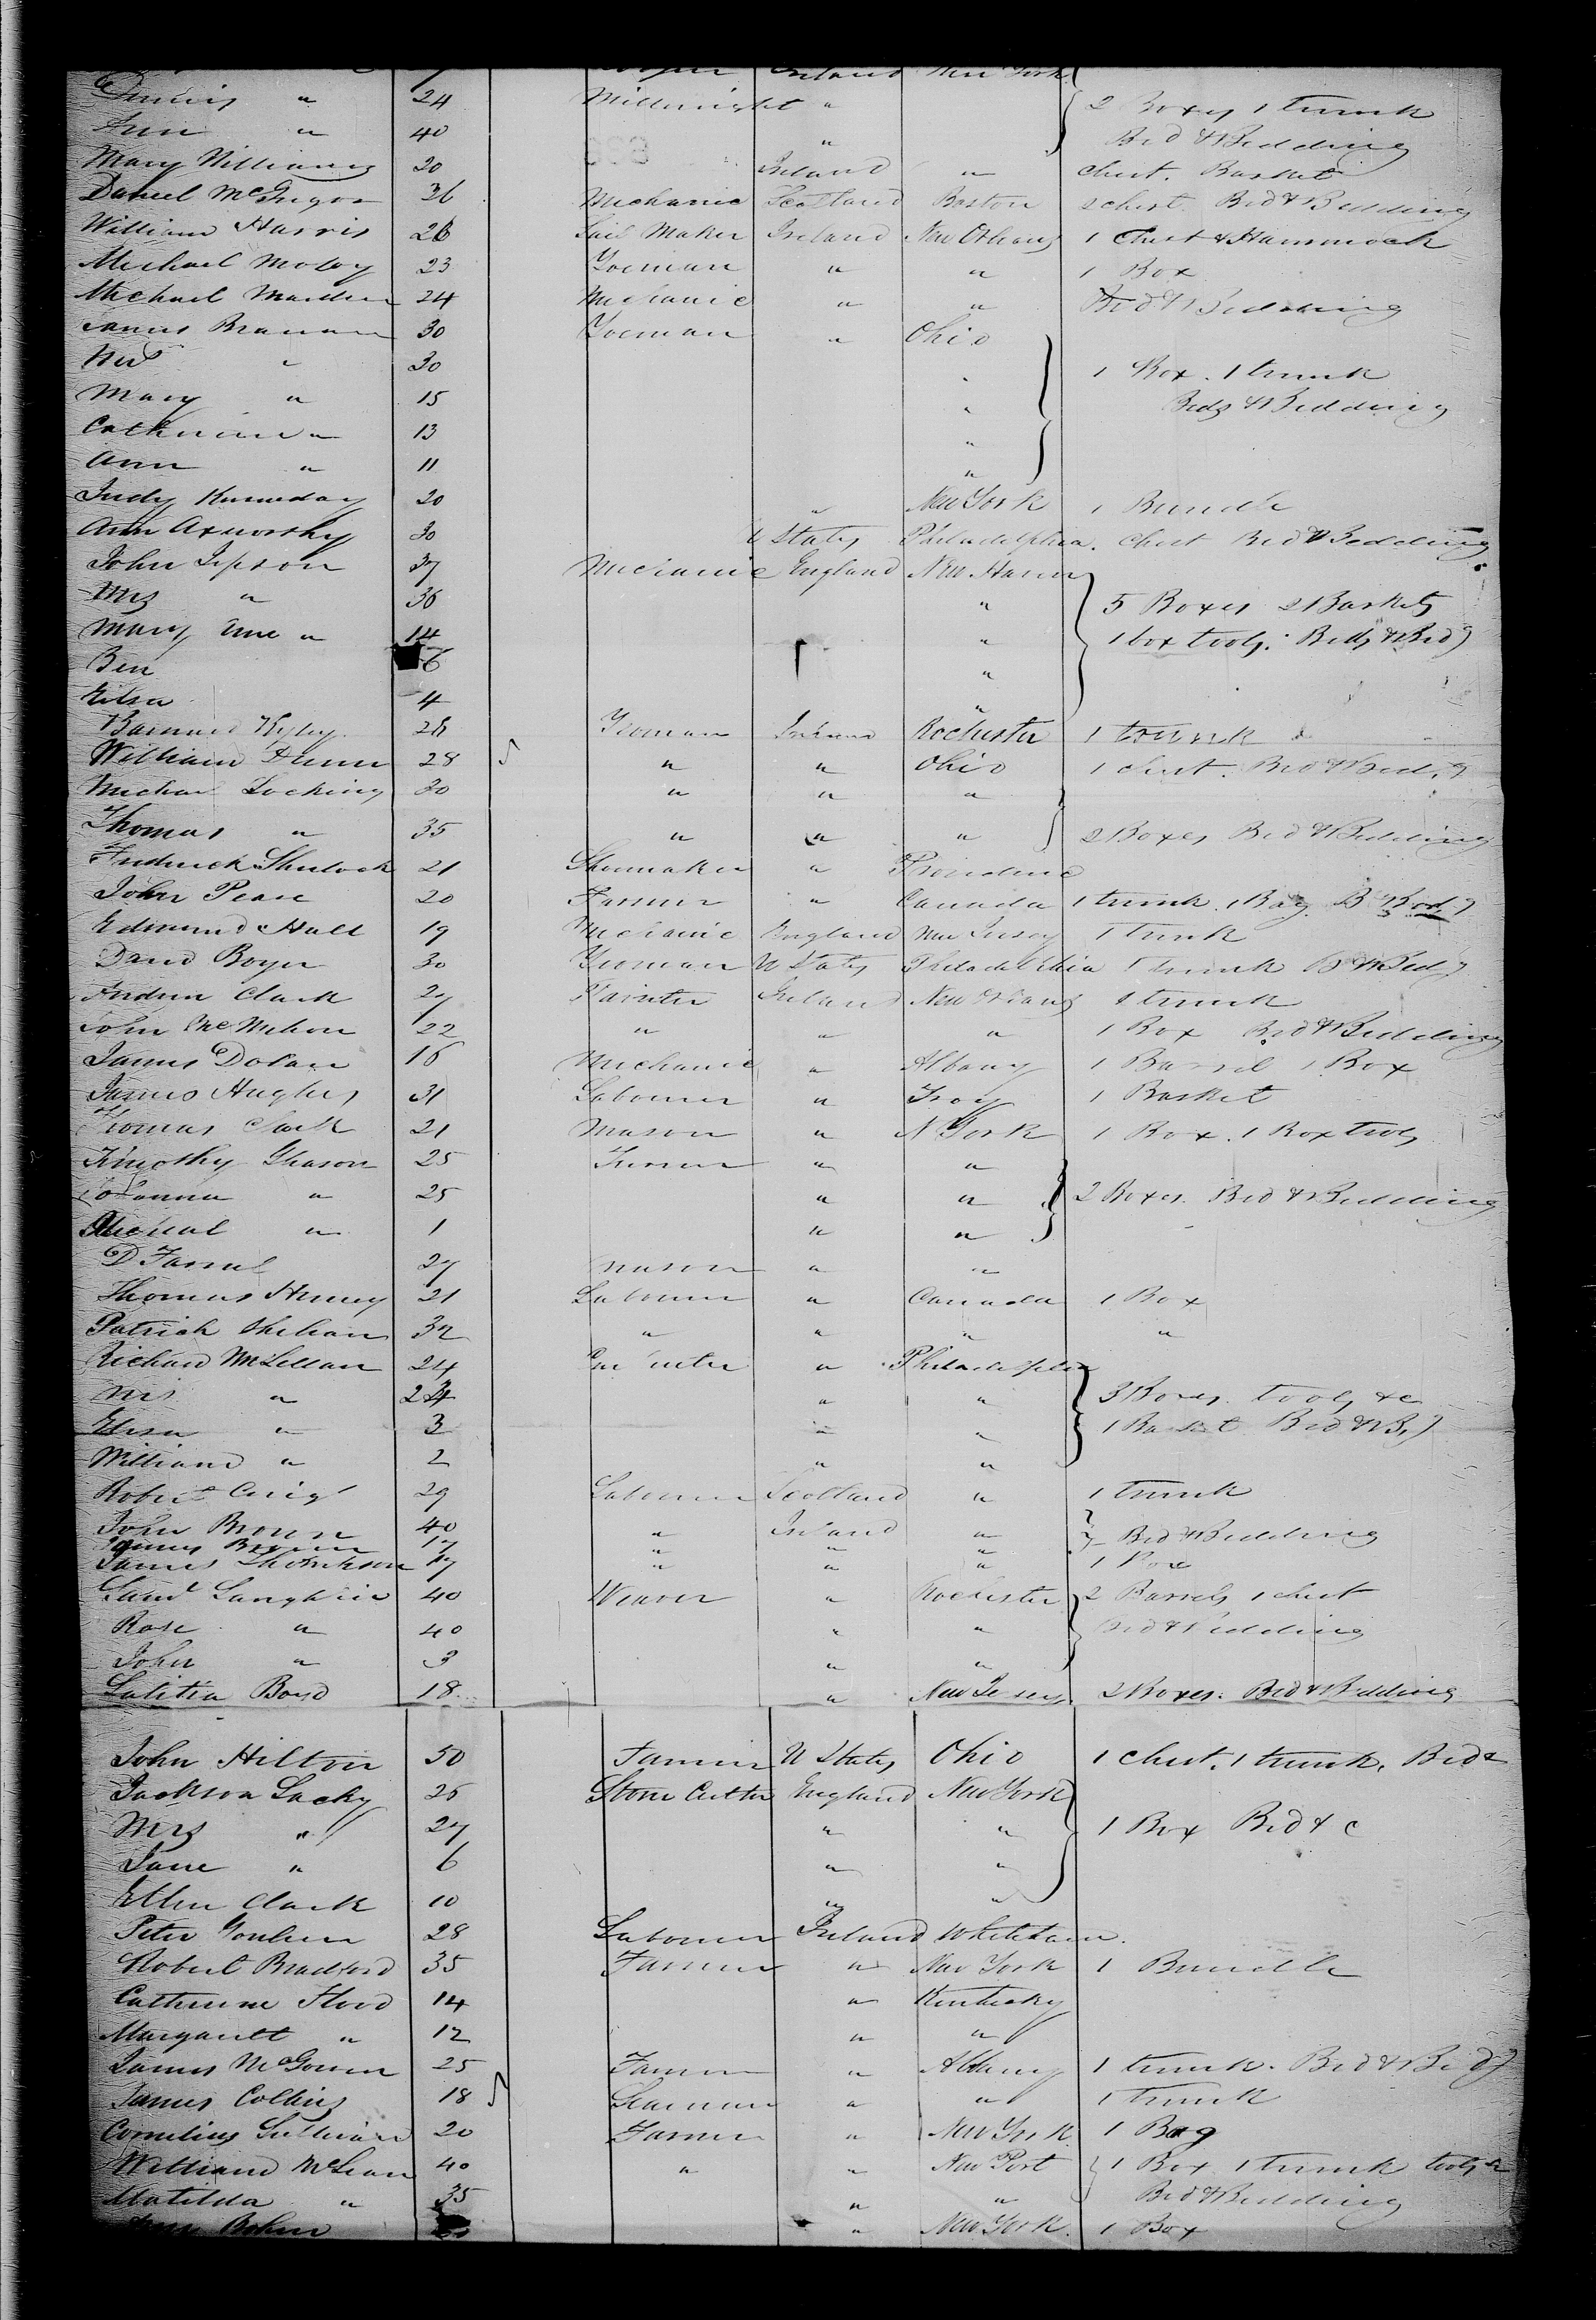 Ireland New York
Dennis " 24 Millwright " 2 Boxes 1 trunk
Ann " 40 " Bed & Bedding
Mary Williams 20 Ireland " Chest. Basket
Daniel McGregor 36 Mechanic Scotland Boston 2 chest. Bed & Bedding
William Harris 26 Sail Maker Ireland New Orleans 1 Chest & Hammock
Michael Moloy 23 Yoeman " " 1 Box
Michael 24 Mechanic " " Bed & Bedding
James Branan 30 Yoeman " Ohio
Mrs " 30 " 1 Box. 1 trunk
Mary " 15 " Beds & Bedding
Catherine " 13 "
Ann " 11 "
Judy Kenneday 20 " New York 1 Bundle
Ann Axworthy 30 U States Philadelphia. Chest Bed & Bedding
John Jepson 37 Mechanic England New Haven
Mrs " 36 " 5 Boxes 2 Baskets
Mary Ann " 14 " 1 box tools. Beds & Bedg
Ben 6 "
Eliza 4 "
Barnard 28 Yeoman Ireland Rochester 1 trunk
William Dunn 28 " " Ohio 1 chest. Bed & Bedg
Michael 30 " " "
Thomas " 35 " " " 2 Boxes Bed & Bedding
Frederick Sherlock 21 Shoemaker " Providence
John Pease 20 Farmer " Canada 1 trunk. 1 Bag. B & Bedg
Edmund Hall 19 Mechanic England New Jersey 1 trunk
David Boyer 30 Yeoman U States Philadelphia 1 trunk B & Bedg
Andrew Clark 27 Painter Ireland New Orleans 1 trunk
John McMahon 22 " " " 1 Box Bed & Bedding
James Dolan 16 Mechanic " Albany 1 Barrel 1 Box
James Hughes 31 Labourer " Troy 1 Basket
Thomas 21 Mason " N York 1 Box. 1 Box tools
Timothy Gleason 25 Farmer " "
Johanna " 25 " " 2 Boxes. Bed & Bedding
Micheal " 1 " "
D Farrel 27 Mason " "
Thomas Heney 21 Labourer " Canada 1 Box
Patrick Shehan 32 " " " "
Richard McLellan 24 " Philadelphia
Mrs " 24 " " 3 Boxes. tools &c
Eliza " 3 " " 1 Basket Bed & Bg
William " 2 " "
Robert Craig 29 Labourer Scotland " 1 trunk
John Brown 40 " Ireland " Bed & Bedding
James Brown 17 " " "
James Thompson 17 " " " 1 Box
Saml 40 Weaver " Rochester 2 Barrels 1 chest
Rose " 40 " " Bed & Bedding
John " 3 " "
Letitia Boyd 18 " New Jersey 2 Boxes. Bed & Bedding
John Hilton 50 Farmer U States Ohio 1 Chest. 1 trunk. Bed &
Jackson Lacky 26 Stone Cutter England New York
Mrs " 27 " " 1 Box Bed & c
Jane " 6 " "
Ellen Clark 10 " "
Peter 28 Labourer Ireland Whitehaven.
Robert Bradford 35 Farmer " New York 1 Bundle
Catherine Flood 14 " Kentucky
Margarett " 12 " "
James McGowen 25 Farmer " Albany 1 trunk. Bed & Bedg
James Collins 18 Seaman " " 1 trunk
Cornelius Sullivan 20 Farmer " New York 1 Bag
William McLean 40 " " New Port 1 Box 1 trunk tools &
Matilda " 35 " " Bed & Bedding
" New York. 1 Box